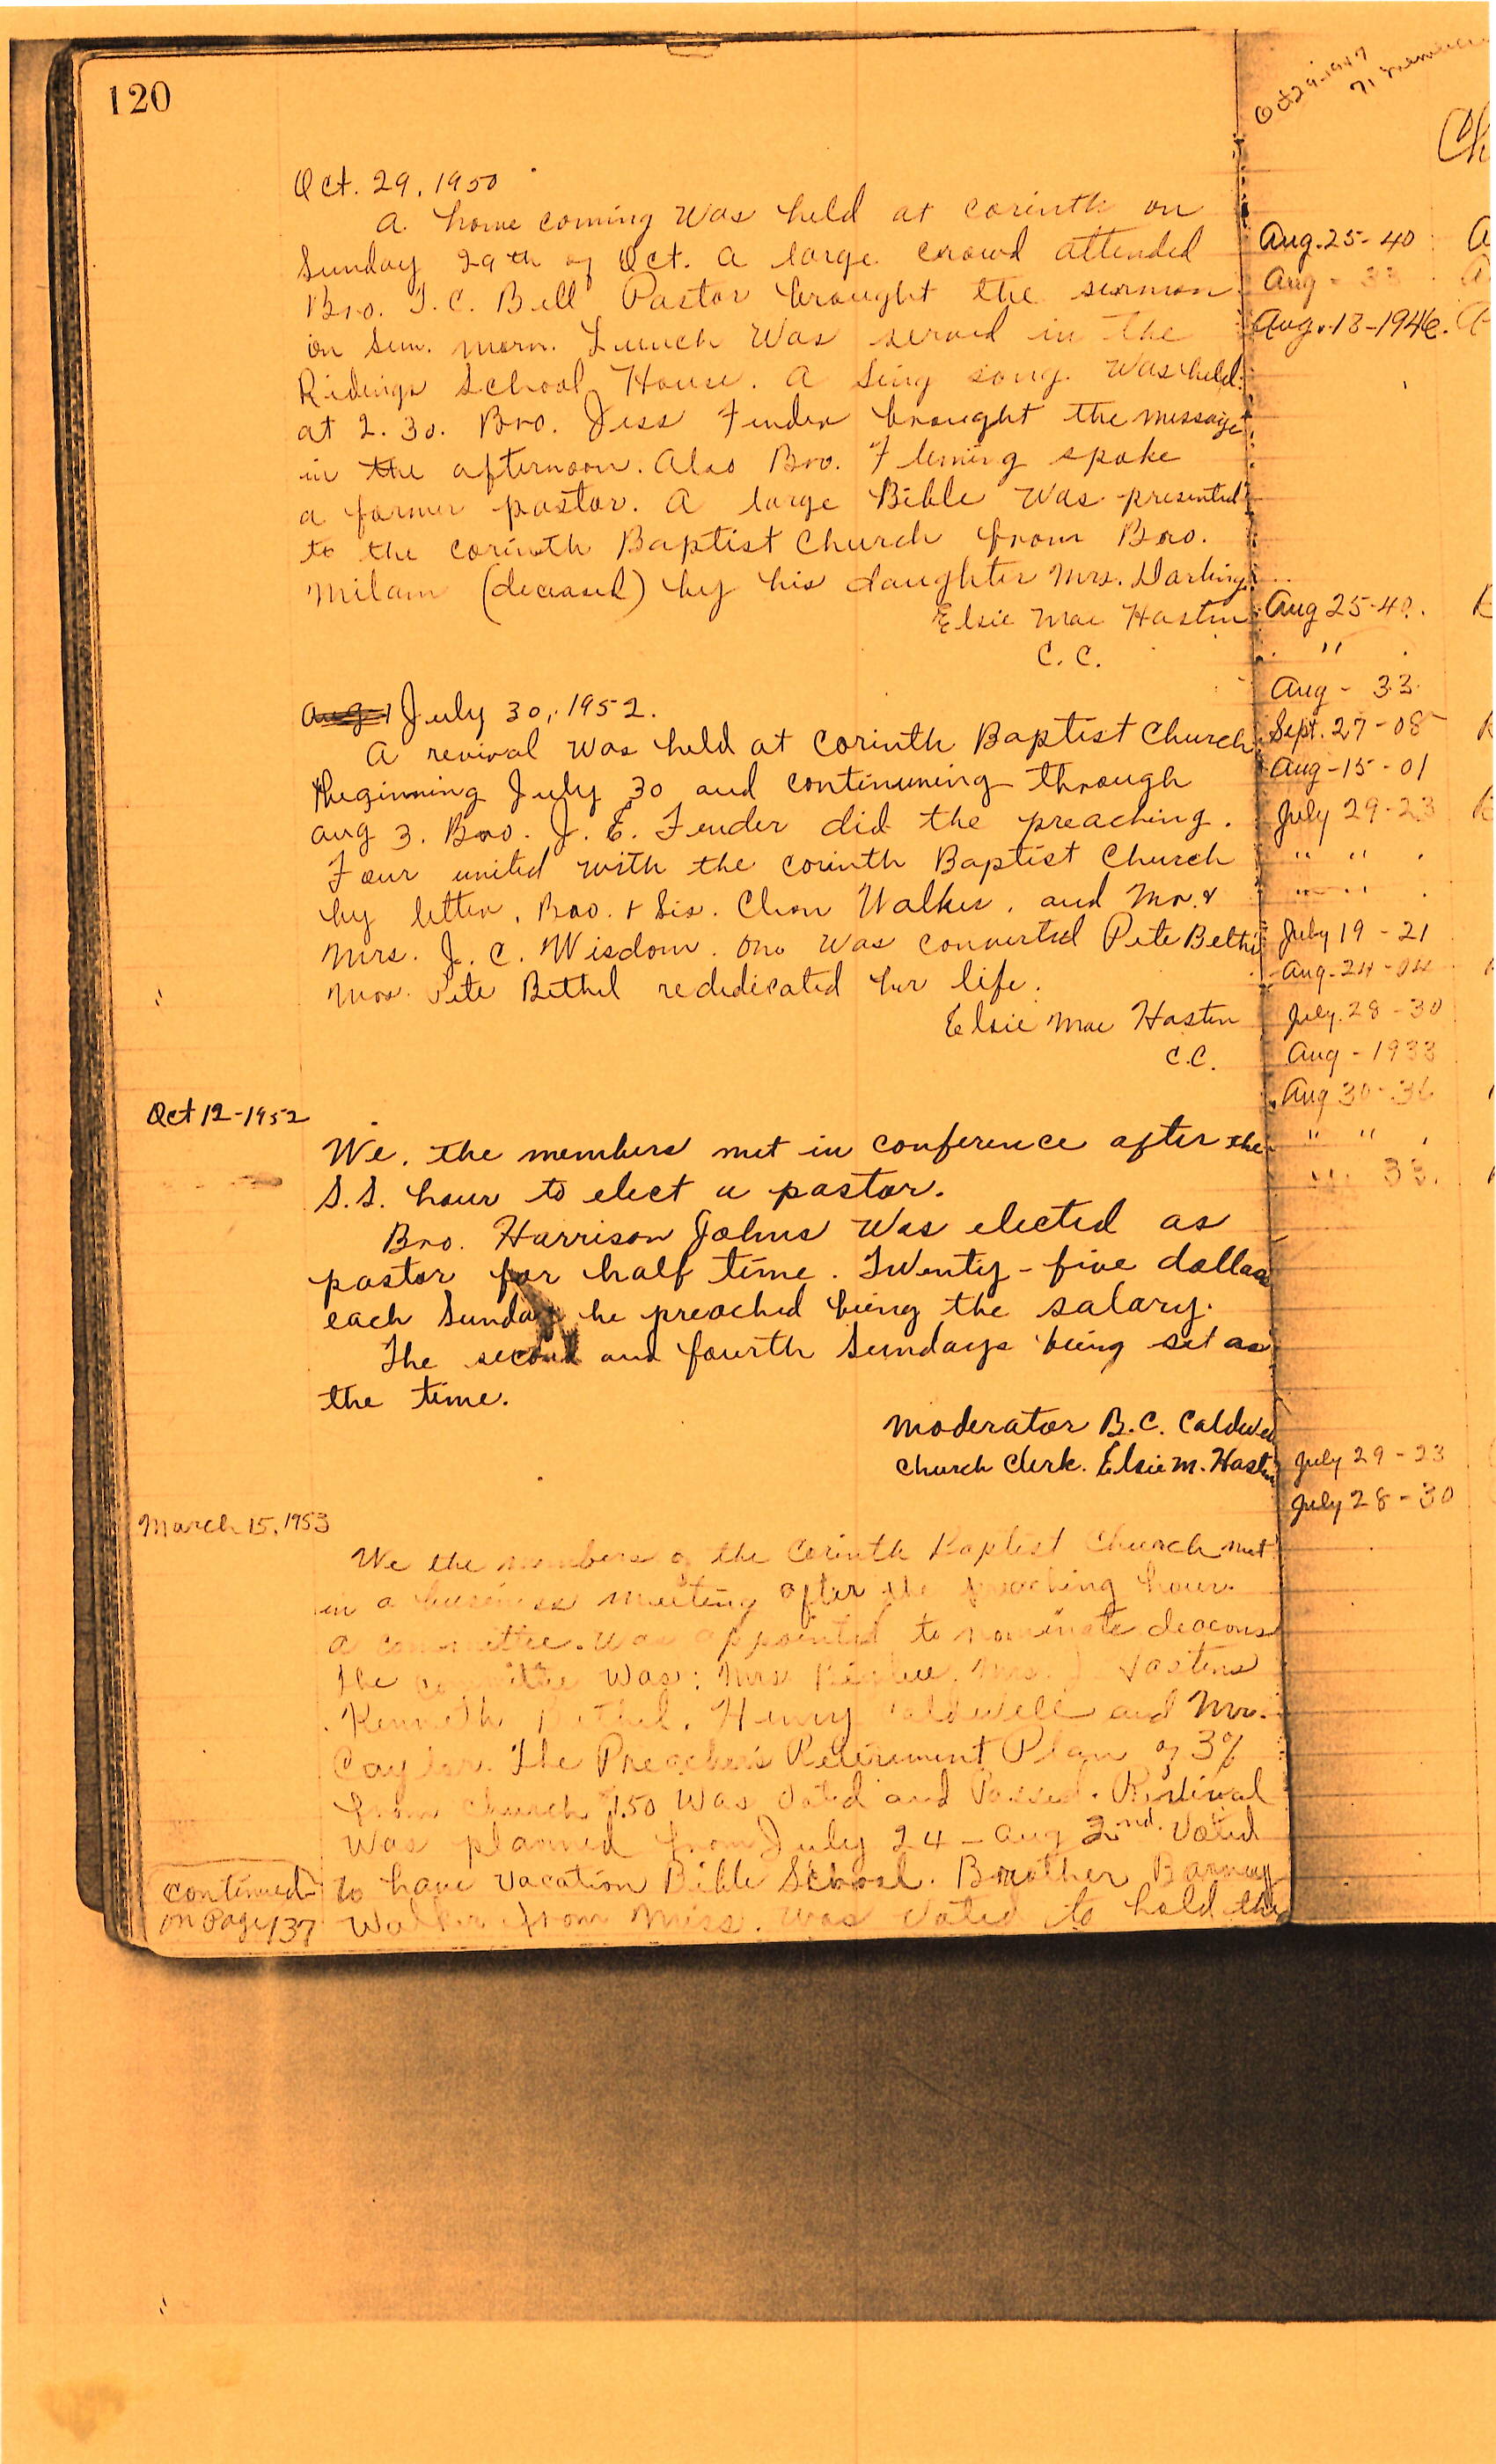 120
Oct. 29, 1950
A home coming was held at Corinth on
Sunday 29th of Oct. A large crowd attended
Bro. T. C. Bell Pastor brought the sermon
on Sun. morn. Lunch was served in the
Ridings School House. A sing song was held
at 2.30. Bro. Jess Fender brought the message
in the afternoon. Also Bro. Fleming spoke
a former pastor. A large Bible was presented
to the Corinth Baptist Church from Bro.
Milam (deceased) by his daughter Mrs. Darling
Elsie Mae Hastin
C. C.
Aug 1 July 30, 1952.
A revival was held at Corinth Baptist Church
beginning July 30 and continuning through
Aug 3. Bro. J. E. Fender did the preaching.
Four united with the Corinth Baptist Church
by letter, Bro. & Sis. Cleon Walker, and Mr. &
Mrs. J. C. Wisdom. One was converted Pete Bethel
Mrs. Pete Bethel rededicated her life.
Elsie Mae Hastin
C.C.
Oct 12-1952
We, the members met in conference after the
S.S. hour to elect a pastor.
Bro. Harrison Johns was elected as
pastor for half time. Twenty-five dollar
each Sunday he preached being the salary.
The second and fourth Sundays being set as
the time.
Moderator B.C. Caldwel
Church Clerk. Elsie M. Hastin
March 15, 1953
We the members of the Corinth Baptist Church met
in a business meeting after the preaching hour.
a committee was appointed to nominate deacons
The committee was: Mrs. Mrs. J Hastins
Kenneth Bethel, Henry Caldwell and Mr.
Caylor. The Preacher's Retirement Plan of 3%
from church 1.50 was voted and Passed. Revival
was planned from July 24 - Aug 2nd. Voted
to have Vacation Bible School. Brother Barney
Walker from Miss. was voted to hold the
continued
on Page 137
Oct 29-1947
71 members
Ch
Aug. 25-40
Aug - 33
Aug. 13-1946.
Aug 25-40.
"
Aug - 33
Sept. 27-08
Aug-15-01
July 29-23
" "
" "
July 19-21
Aug-24-04
July 28-30
Aug-1933
Aug 30-36
" "
" 33.
July 29-23
July 28-30